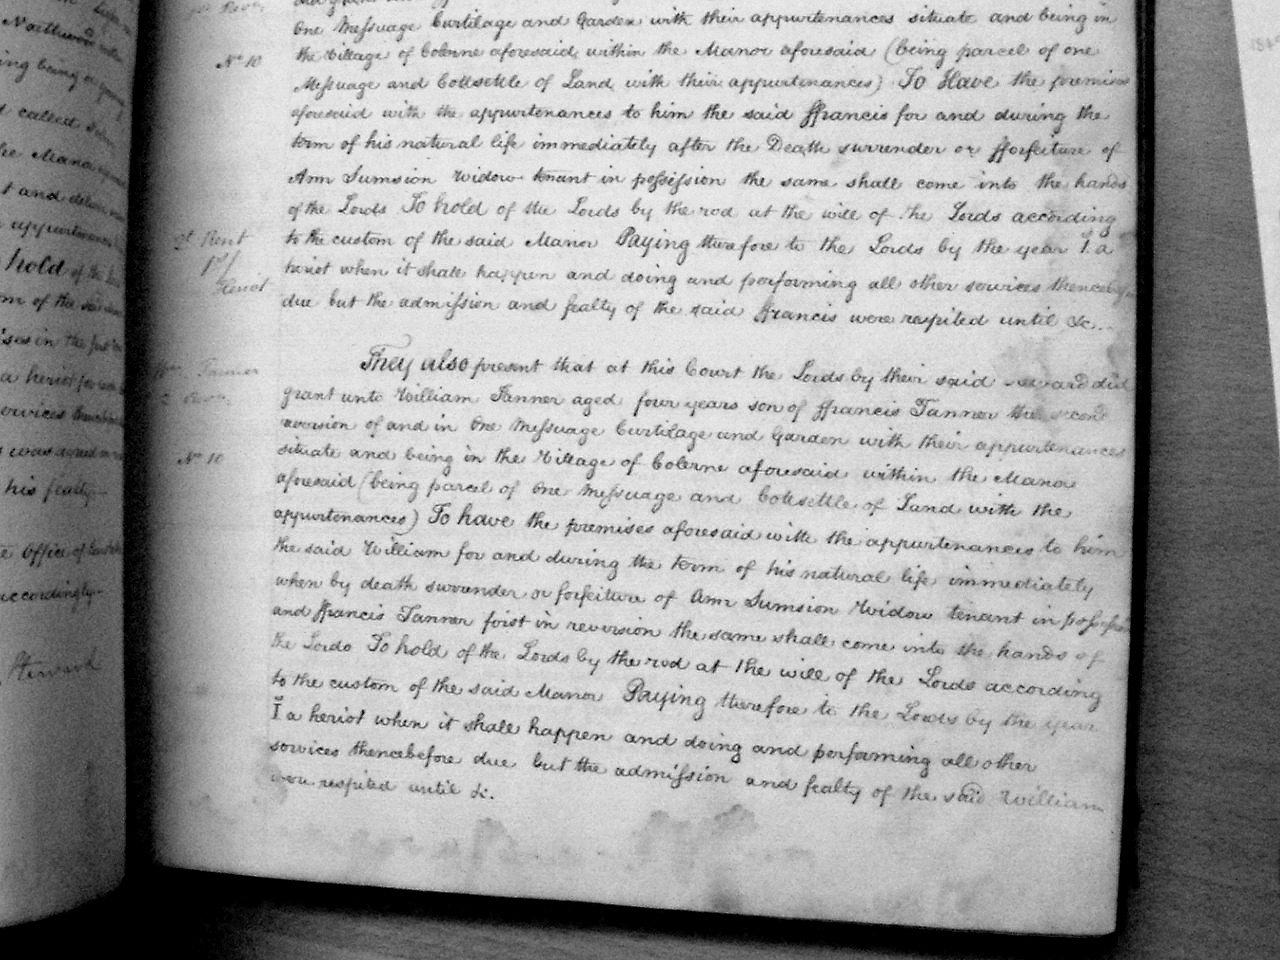 One Messuage Curtilage and Garden with their appurtenances situate and being in
No 10
the Village of Colerne aforesaid within the Manor aforesaid (being parcel of one
Messuage and Cottsettle of Land with their appurtenances) To Have the premises
aforesaid with the appurtenances to him the said ffrancis for and during the
term of his natural life immediately after the Death surrender or fforfeiture of
Ann Sumsion Widow tenant in possession the same shall come into the hands
of the Lords To hold of the Lords by the rod at the will of the Lords according
Rent
to the custom of the said Manor Paying therefore to the Lords by the year 1. a
Heriot
heriot when it shall happen and doing and performing all other services thencebefore
due but the admission and fealty of the said ffrancis were respited until &c.
They also present that at this Court the Lords by their said steward did
Tanner
grant unto William Tanner aged four years son of ffrancis Tanner the second
reversion of and in One Messuage Curtilage and Garden with their appurtenances
No 10
situate and being in the Village of Colerne aforesaid within the Manor
aforesaid (being parcel of One Messuage and Cottsettle of Land with the
appurtenances) To have the premises aforesaid with the appurtenances to him
the said William for and during the term of his natural life immediately
when by death surrender or forfeiture of Ann Sumsion Widow tenant in possession
and ffrancis Tanner first in reversion the same shall come into the hands of
the Lords To hold of the Lords by the rod at the will of the Lords according
to the custom of the said Manor Paying therefore to the Lords by the year
I a heriot when it shall happen and doing and performing all other
services thencebefore due but the admission and fealty of the said William
were respited until &c.
called
hold of the
a heriot for
services
was
his fealty
Office of
accordingly
Steward